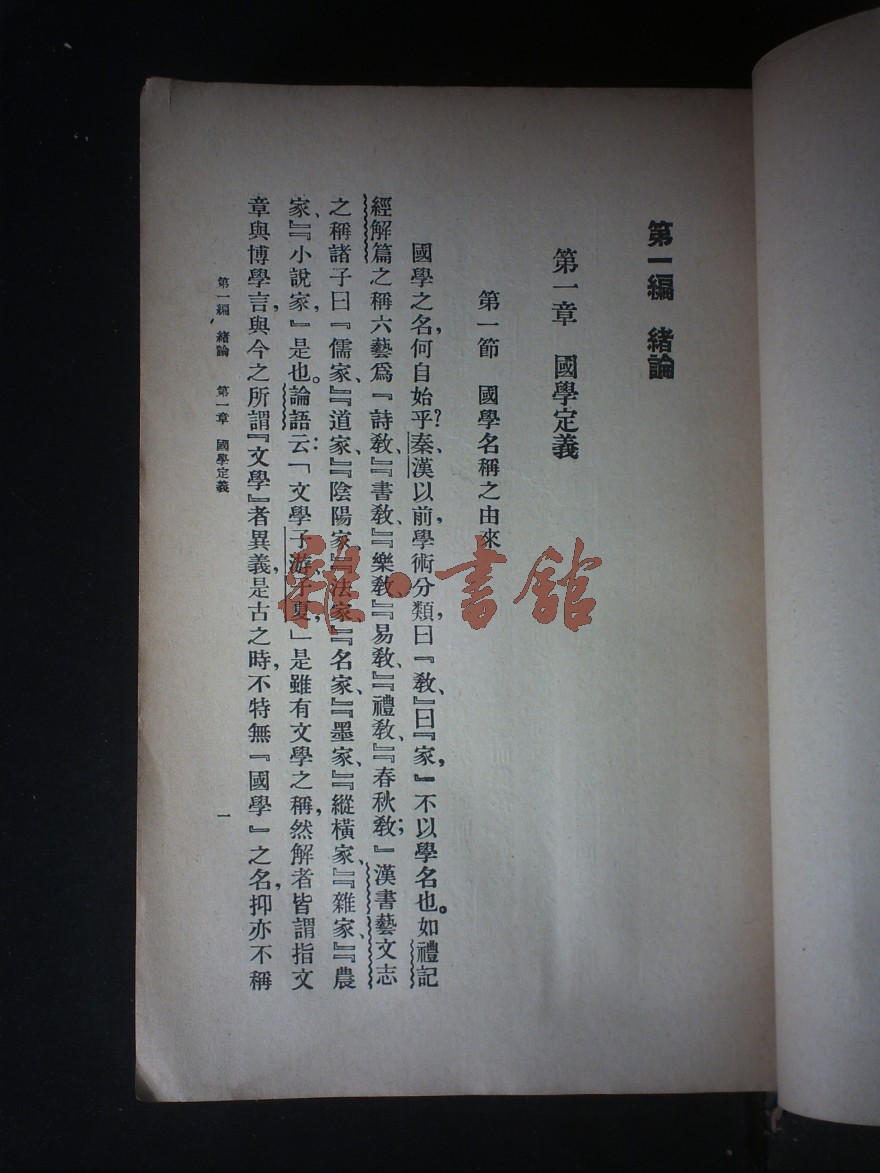 第一編　緒論
第一章　國學定義
第一節　國學名稱之由來
國學之名，何自始乎？秦、漢以前，學術分類，曰『敎、』曰『家，』不以學名也。如禮記
經解篇之稱六藝爲『詩敎、』『書敎、』『樂敎、』『易敎、』『禮敎、』『春秋敎；』漢書藝文志
之稱諸子曰『儒家、』『道家、』『陰陽家、』『法家、』『名家、』『墨家、』『縱橫家、』『雜家、』『農
家、』『小說家，』是也。論語云：「文學子游、子夏，」是雖有文學之稱，然解者皆謂指文
章與博學言，與今之所謂『文學』者異義，是古之時，不特無『國學』之名，抑亦不稱
第一編　緒論　第一章　國學定義
一
雜·書館